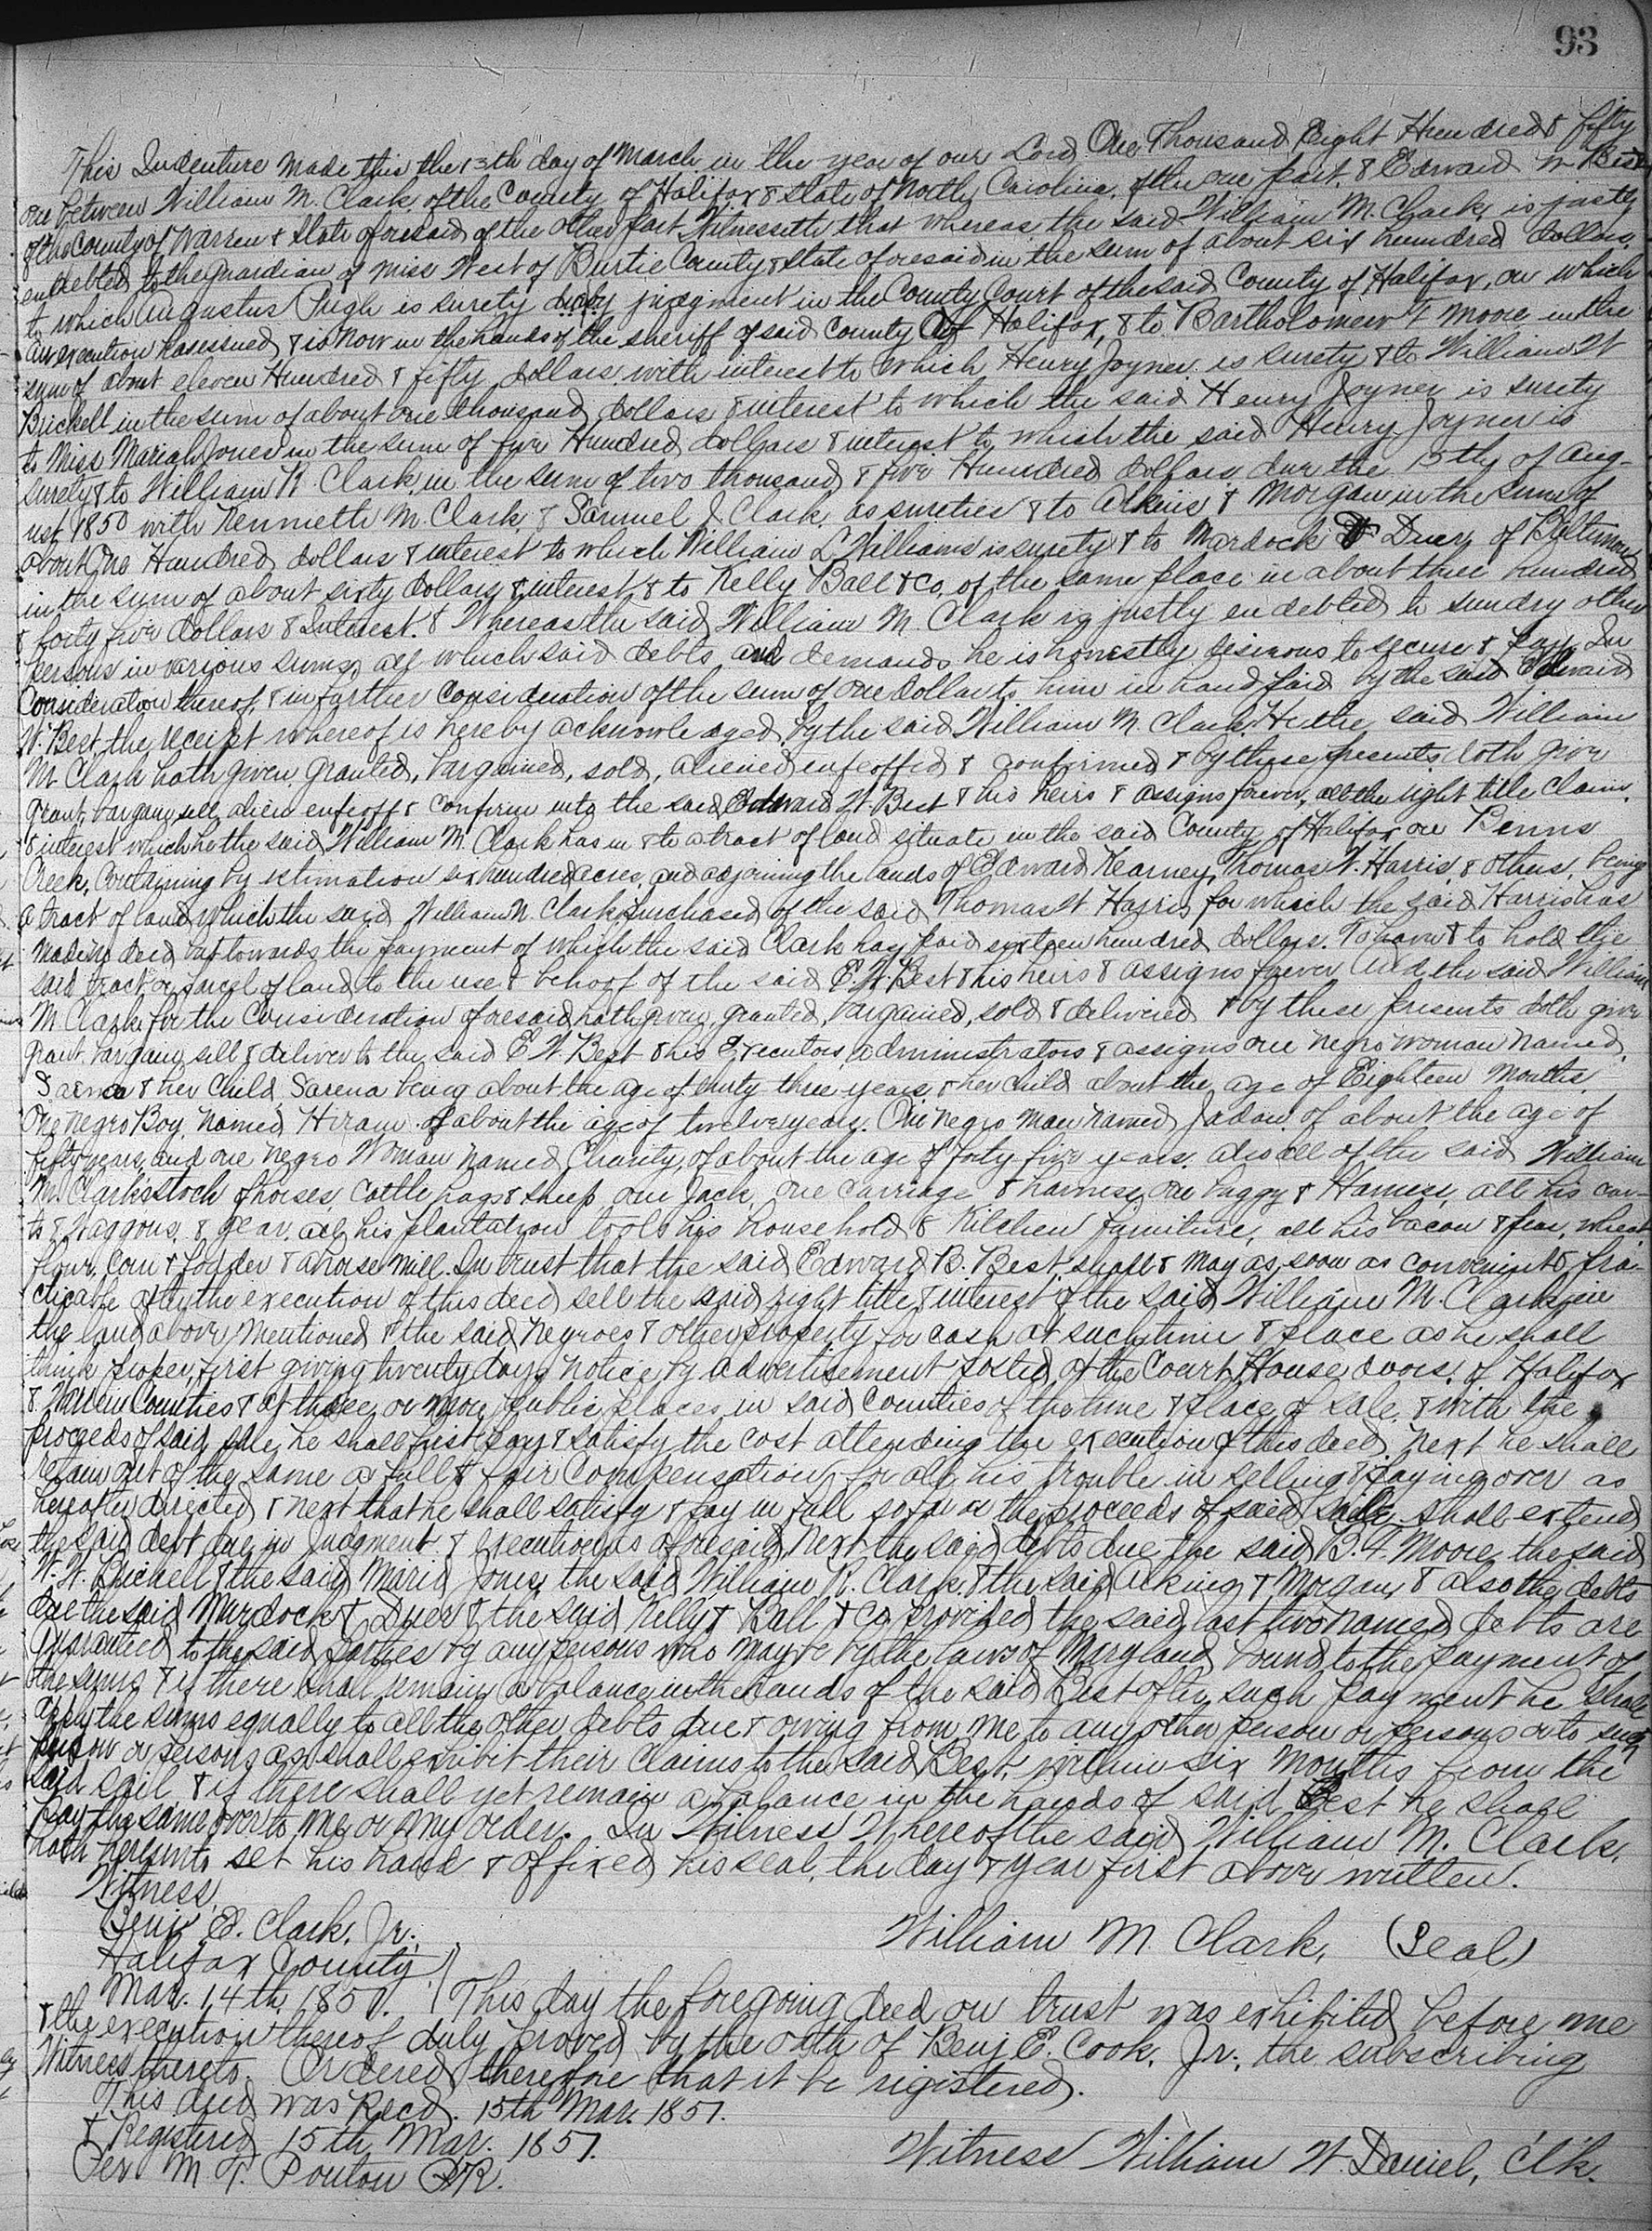 93
This Indenture Made this the 13th day of March in the year of our Lord One Thousand Eight Hundred & fifty
one between William M. Clark of the County of Halifax & State of North Carolina of the one part & Edward W Best
of the County of Warren & State aforesaid of the other part Witnesseth that whereas the said William M. Clark is justly
endebted to the guardian of Miss West of Burtie County & state aforesaid in the sum of about six hundred dollars
to which Augustus Pugh is surety judgment in the County Court of the said County of Halifax, on which
an execution has essued & is now in the hands of the sheriff of said County of Halifax, & to Bartholomew F Moore in the
sum of about eleven Hundred & fifty dollars with interest to which Henry Joyner is surety & to William W
Brickell in the sum of about one thousand dollars & interest to which the said Henry Joyner is surety
to Miss Mariah Jones in the sum of five Hundred dollars & interest to which the said Henry Joyner is
surety & to William R. Clark in the sum of two thousand & five Hundred dollars due the 15th of Aug-
ust 1850 with Kenneth M. Clark & Samuel J. Clark as sureties & to Atkins & Morgan in the sum of
about One Hundred dollars & interest to which William L Williams is surety & to Mardock & Duer of Baltimore
in the sum of about sixty dollars & interest & to Kelly Ball & Co. of the same place in about three hundred
& forty five dollars & Interest. & Whereas the said William M. Clark is justly endebted to sundry other
persons in various sums, all which said debts and demands he is honestly desirous to secure & pay. In
Consideration thereof & in farther consideration of the sum of one dollar to him in hand paid by the said Edward
W. Best the receipt whereof is hereby acknowledged by the said William M. Clark. He the said William
M Clark hath given granted, bargained, sold, aliened enfeoffed & confirmed & by these presents doth give
grant, bargain, sell, alien enfeoff & confirm into the said Edward W. Best & his heirs & assigns forever, all the right title claim
& interest which he the said William M. Clark has in & to a tract of land situate in the said County of Halifax on Benns
Creek, Containing by estimation six hundred acres, and adjoining the lands of Edward Kearney, Thomas W. Harris & others, being
a tract of land which the said William M. Clark purchased of the said Thomas W Harris for which the said Harris has
made no deed but towards the payment of which the said Clark has paid sixteen hundred dollars. To have & to hold the
said tract or parcel of land to the use & behoof of the said E W. Best & his heirs & assigns forever And the said William
M Clark for the Consideration aforesaid hath given, granted, bargained, sold & delivered & by these presents doth give
grant, bargain, sell & deliver to the said E W. Best & his Executors, administrators & assigns one negro woman named
Sarena & her child, Sarena being about the age of thirty three years & her child about the age of Eighteen Months.
One negro Boy, named Hiram of about the age of twelve years. One negro man named Jadan of about the age of
fifty years, and one negro Woman named Charity, of about the age of forty five years. also all of the said William
M. Clark's stock of horses, cattle hogs & sheep, one Jack, one carriage & harness, one buggy & Harness, all his car-
ts & Waggons, & gear, all his plantation tools his household & Kitchen furniture, all his bacon & peas, wheat
flour, corn & fodder & a horse mill. In trust that the said Edward B. Best, shall & may as soon as convenient & pra-
cticable after the execution of this deed sell the said right title & interest of the said William M. Clark in
the land above mentioned & the said negroes & other property for cash at such time & place as he shall
think proper, first giving twenty days notice by advertisement posted at the Court House doors, of Halifax
& Warren Counties & at three or more public places in said Counties of the time & place of sale, & with the
proceeds of said sale, he shall first pay & satisfy the cost attending the execution of this deed, next he shall
retain out of the same a full & fair Compensation for all his trouble in selling & paying over as
hereafter directed & next that he shall satisfy & pay in full so far as the proceeds of said sale shall extend
the said debt due in Judgment & execution as aforesaid, Next the said debts due the said B. F. Moore, the said
W. W. Brickell & the said Maria Jones, the said William R. Clark, & the said Atkins & Morgan & also the debts
due the said Murdock & Duer & the said Kelly & Ball & Co. provided the said last two named debts are
guaranteed to the said parties by any persons who may be by the laws of Maryland bound to the payment of
the sums & if there shall remain a balance in the hands of the said Best after such payment he shall
apply the sums equally to all the other debts due & owing from me to any other person or persons or to such
person or persons as shall exhibit their claims to the said Best, within six months from the
said sail & if there shall yet remain a balance in the hands of said Best he shall
pay the same over to me or my order. In Witness Whereof the said William M. Clark,
hath hereunto set his hand & affixed his seal, the day & year first above written.
Witness
Benj E. Clark, Jr.
William M. Clark, (Seal)
Halifax County
Mar. 14th, 1851. This day the foregoing deed on trust was exhibited before me
& the execution thereof duly proved by the oath of Benj E. Cook, Jr., the subscribing
Witness thereto. Ordered therefore that it be registered.
This deed was Recd. 15th Mar. 1851.
& Registered 15th Mar. 1851.
Witness William W. Daniel, Clk.
Per M T. Ponton PR.